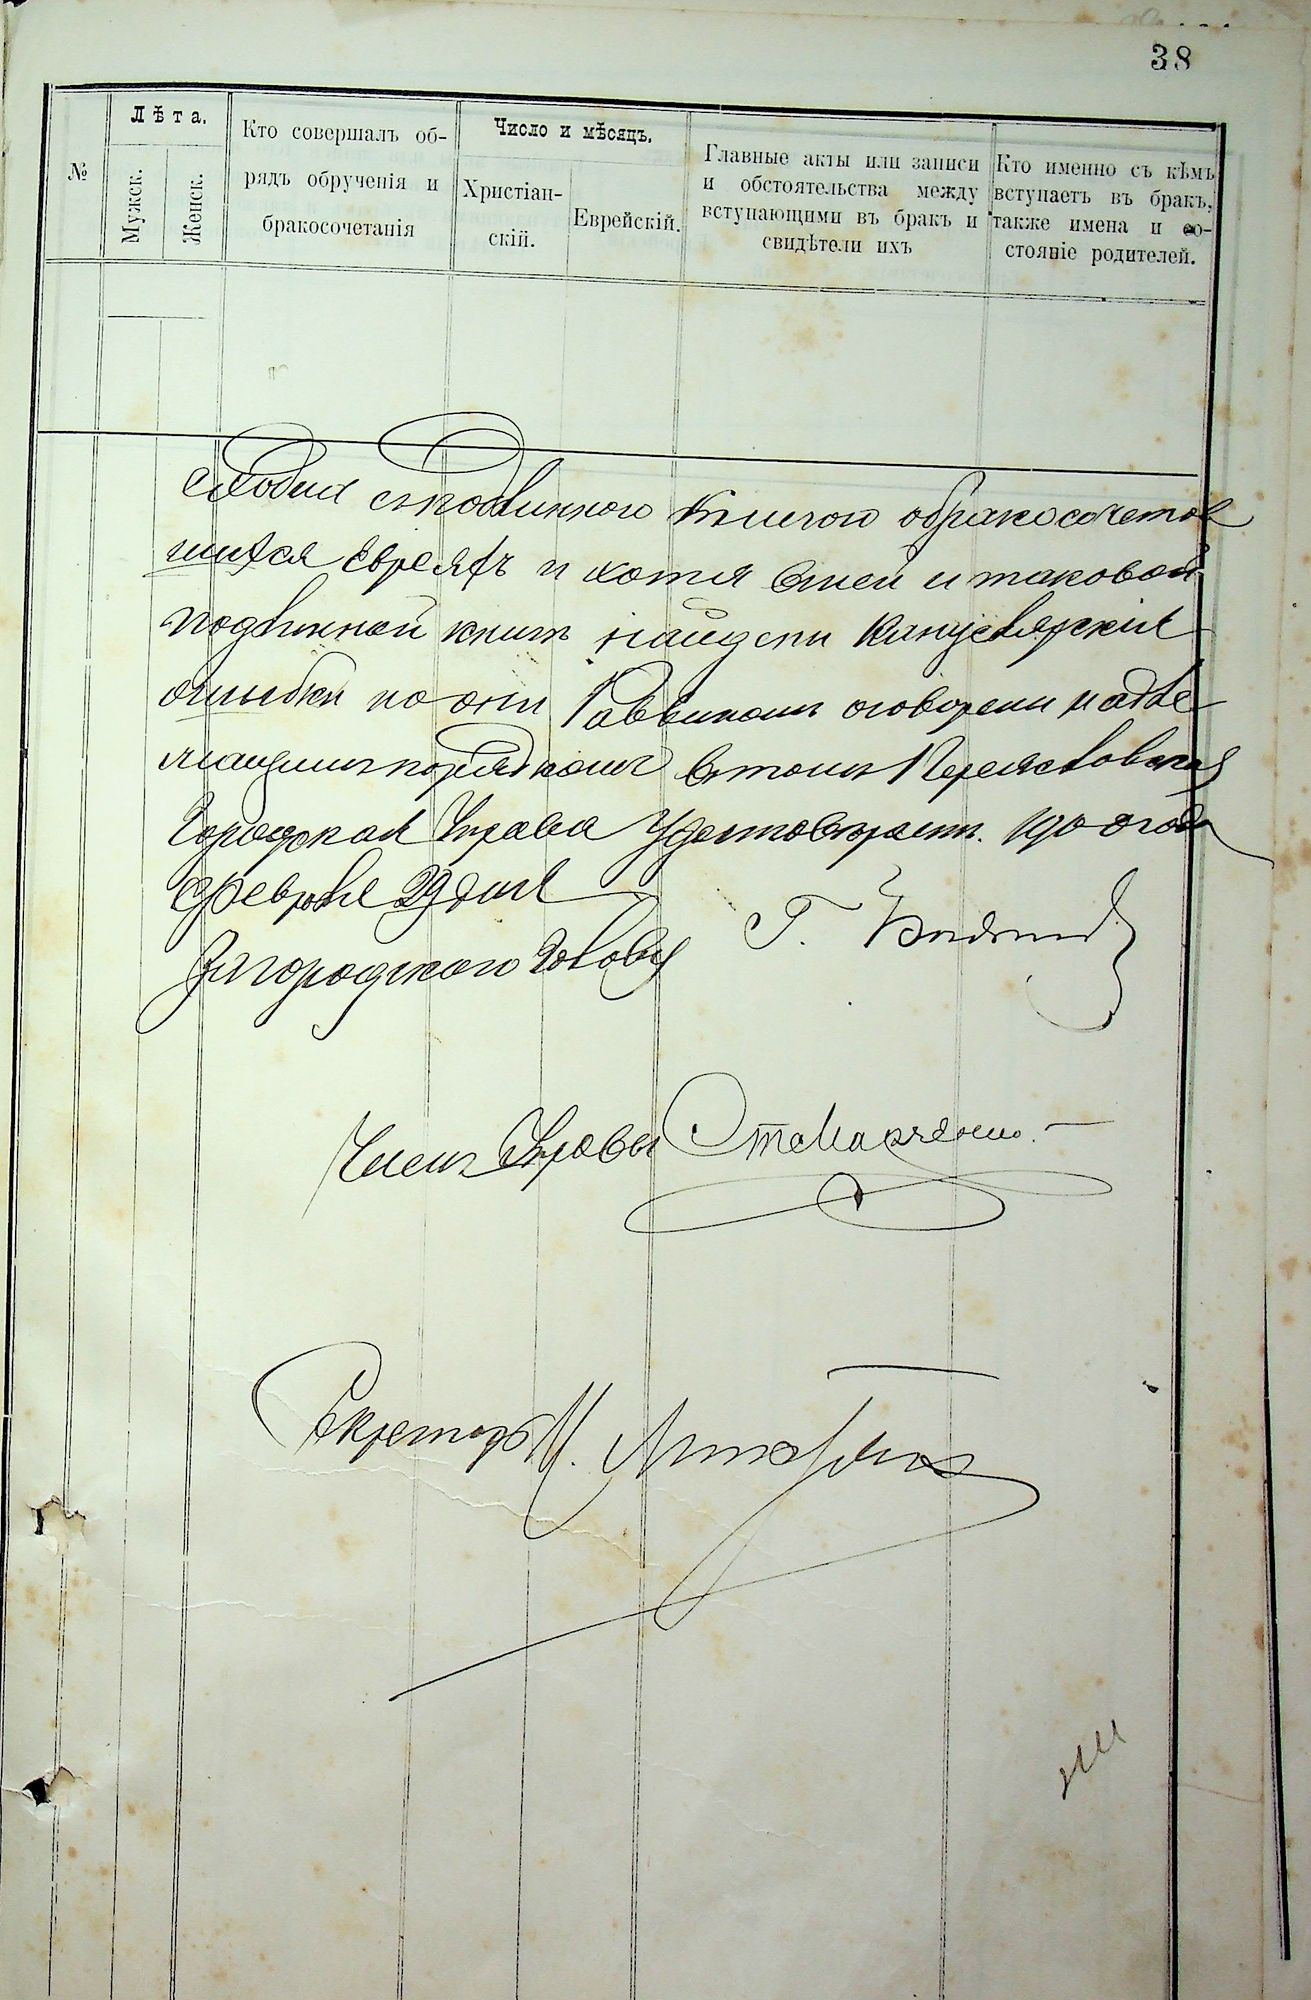 38
№
Лѣта.
Мужск.
Женск.
Кто совершалъ об-
рядъ обрученія и
бракосочетанія
Число и мѣсяцъ.
Христіан-
скій.
Еврейскій.
Главные акты или записи
и обстоятельства между
вступающими въ бракъ и
свидѣтели ихъ
Кто именно съ кѣмъ
вступаетъ въ бракъ,
также имена и со-
стояніе родителей.
съ подлинною книгою обракосочетав
шихся Евреяхъ и хотя в ней и таковой
подлинной книгѣ найдены Канцелярскія
ошибки но они Раввиномъ оговорены надле
жащимъ порядкомъ в томъ Переяславская
Городская Управа Удостовѣряетъ. 1900 года
Февраля 29 дня
За городского Голову Г.
Членъ Управы
Секретарь